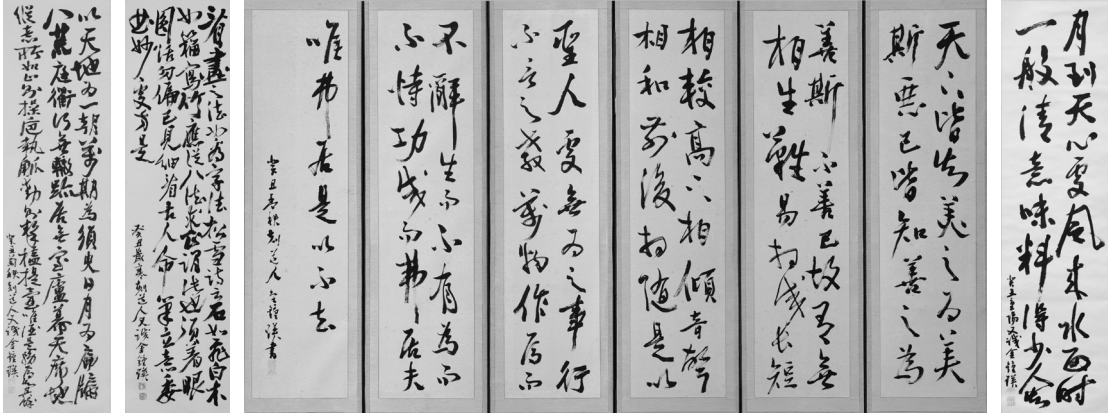 月到天心處風來水面時
一般清意味料得少人知
天下皆知美之為美
斯惡已皆知善之為
善斯不善已故有無
相生難易相成長短
相較高下相傾音聲
相和前後相隨是以
聖人處無為之事行
不言之教萬物作焉而
不辭生而不有為而
不恃功成而弗居夫
唯弗居是以不去
畫之法亦為字法松雪詩云石如飛白木
如籀寫竹應從八法求正謂此也須着眼
圓活勿偏己見細省古人命筆立意委
曲妙處方是
以天地為一朝萬期為須臾日月為扃牖
八荒庭衢行無轍跡居無室廬幕天席地
縱意所如止則操巵執觚動則挈榼提壺唯酒是務焉知其餘